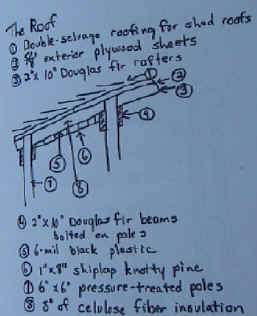 The Roof
① Double-selvage roofing for shed roofs
② exterior plywood sheets
③ 2"x 10" Douglas fir rafters
① ② ③
④
⑤ ⑥
⑦ ⑧
④ 2"x10" Douglas fir beams
bolted on poles
⑤ 6-mil black plastic
⑥ 1"x8" shiplap knotty pine
⑦ 6"x6" pressure-treated poles
⑧ 8" of celulose fiber insulation